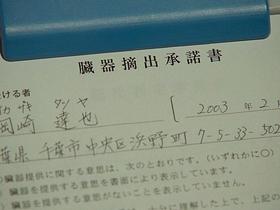 臓器摘出承諾書
ける者
岡崎 達也 [ 2003 年 2 月
葉県 千葉市中央区浜野町 7-5-33-502
臓器提供に関する意思は、次のとおりです。(いずれかに〇
臓器を提供する意思を書面により表示しています。
臓器を提供する意思がないことを表示していません。
上、上記の